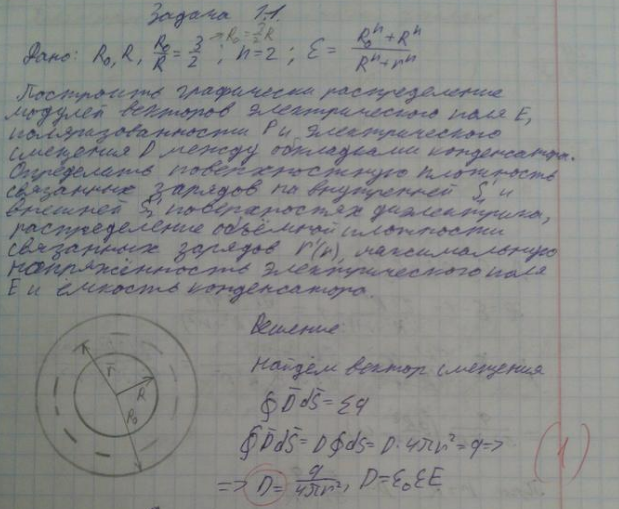 Задача 1.1
→ R₀ = 3/2 R
Дано: R₀, R, R₀/R = 3/2 ; n=2 ; ε = (R₀ⁿ+Rⁿ)/(Rⁿ+rⁿ)
Построить графически распределение
модулей векторов электрического поля E,
поляризованности P и электрического
смещения D между обкладками конденсатора.
Определить поверхностную плотность
связанных зарядов на внутренней и
внешней поверхностях диэлектрика,
распределение объёмной плотности
связанных зарядов максимальную
напряжённость электрического поля
E и ёмкость конденсатора.
Решение:
Найдём вектор смещения
∮ D̄ dS̄ = Σq
∮ D̄ dS̄ = D ∮ dS = D · 4πr² = q =>
=> D = q/4πr², D = ε₀εE
(1)
r
R
R₀